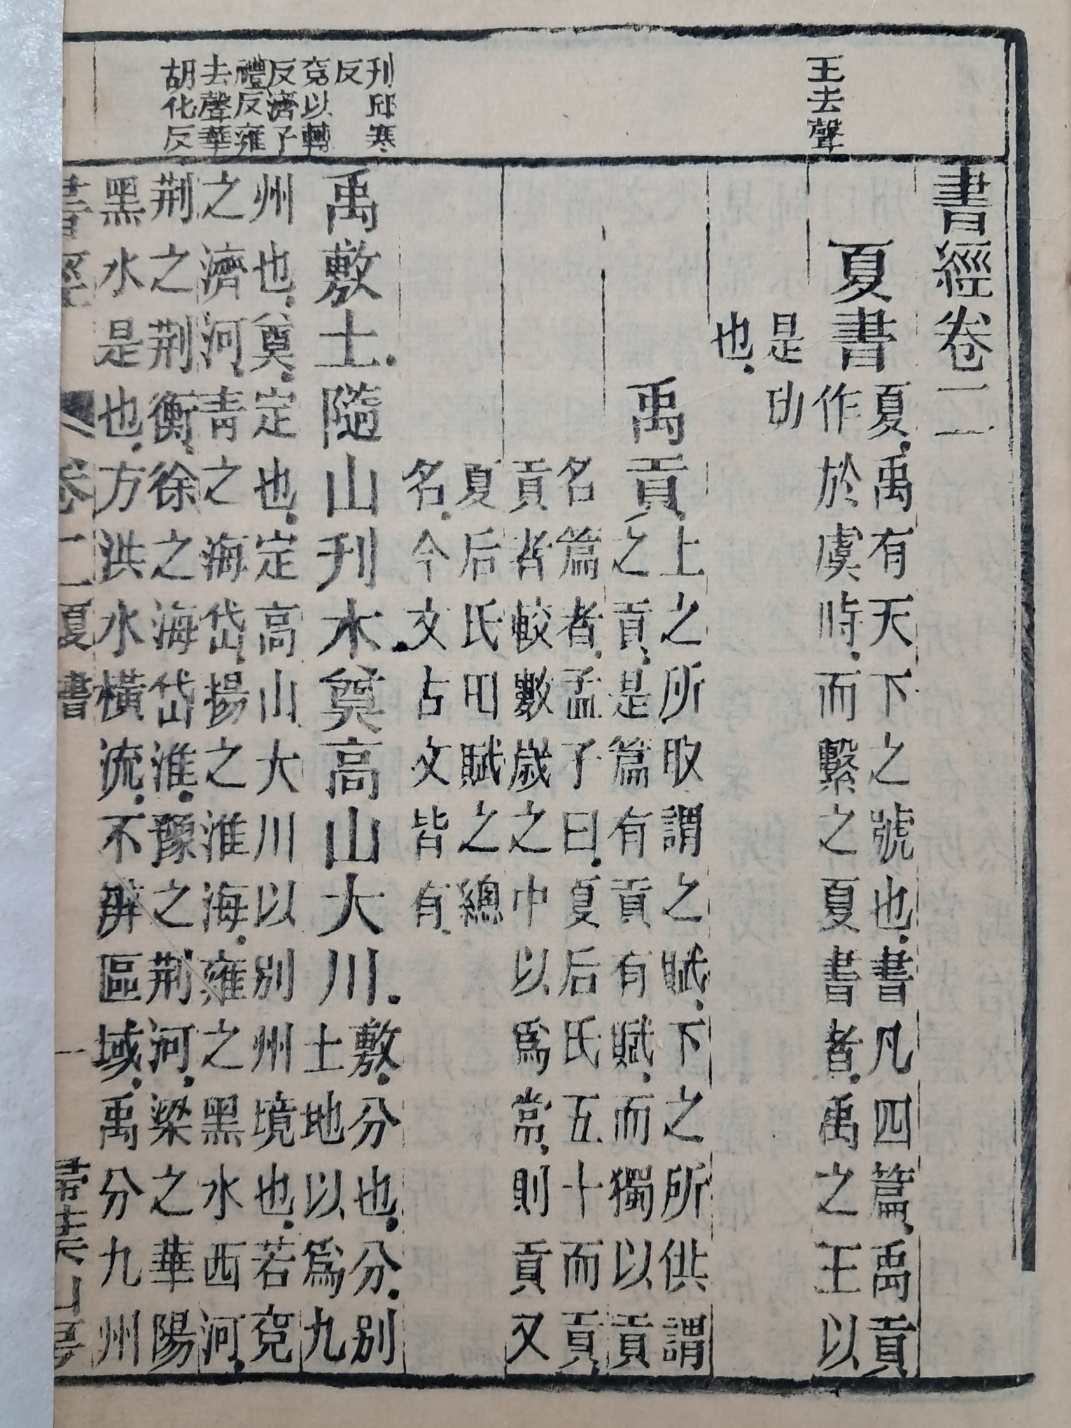 王去聲
刊邱寒
反
兗以轉
反濟子
禮反雍
去聲華
胡化反
書經卷二
夏書
夏禹有天下之號也書凡四篇禹貢
作於虞時而繫之夏書者禹之王以
是功
也
禹貢
上之所取謂之賦下之所供謂
之貢是篇有貢有賦而獨以貢
名篇者孟子曰夏后氏五十而貢
貢者較數歲之中以爲常則貢又
夏后氏田賦之總
名今文古文皆有
禹敷土隨山刊木奠高山大川
敷分也分別
土地以爲九
州也奠定也定高山大川以別州境也若兗
之濟河青之海岱揚之淮海雍之黑水西河
荆之荆衡徐之海岱淮豫之荆河梁之華陽
黑水是也方洪水橫流不辨區域禹分九州
書經 卷二夏書 一 掃葉山房